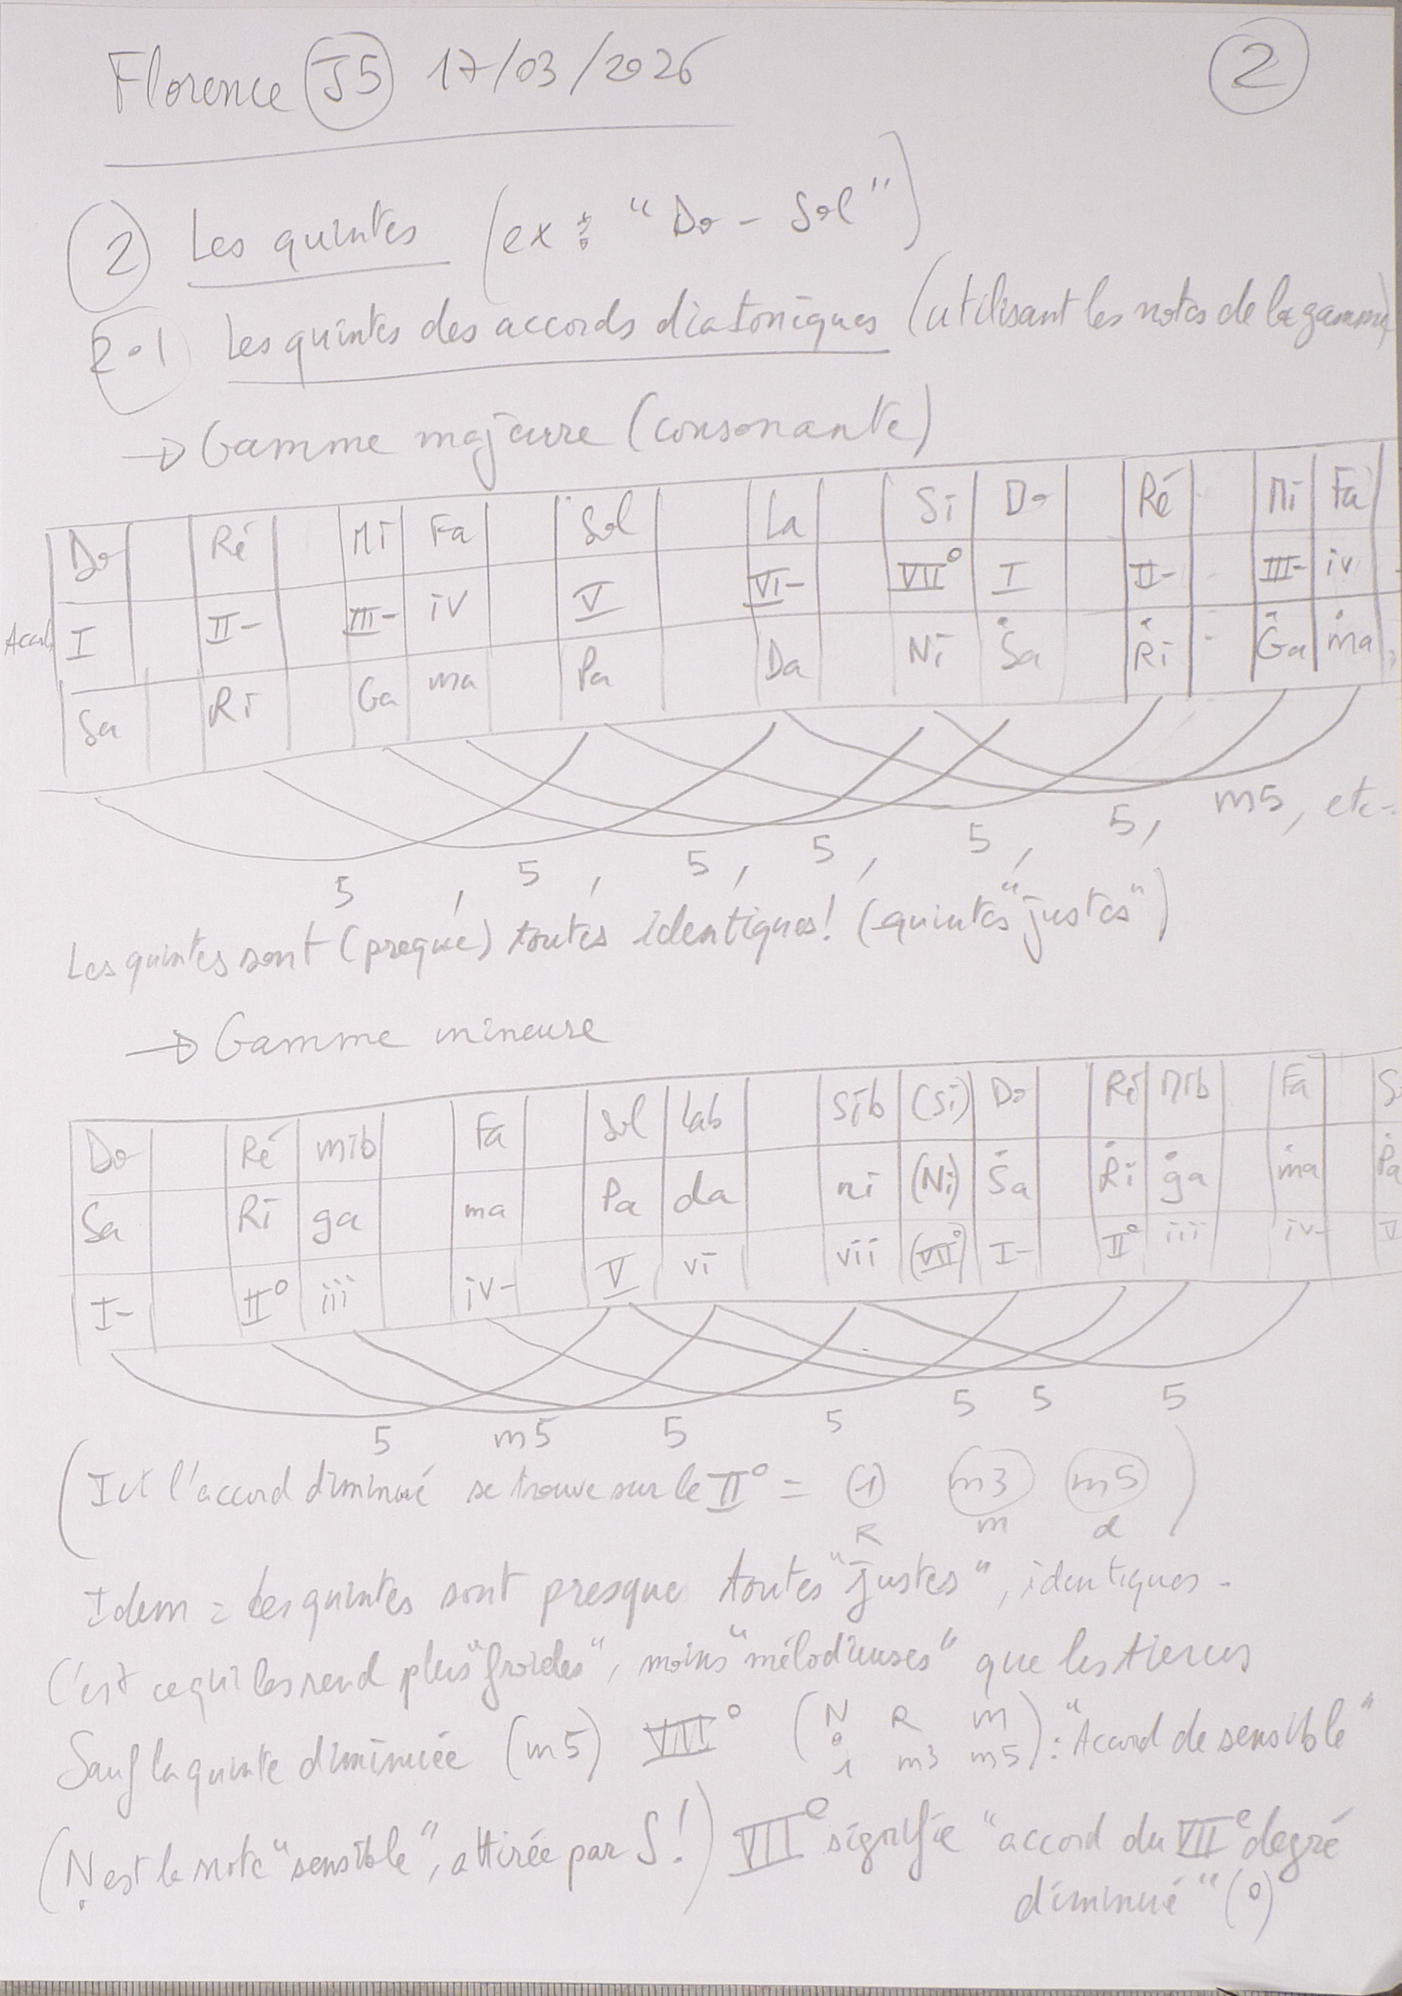 Florence J5 17/03/2026
2
2 Les quintes (ex : "Do - Sol")
2.1 Les quintes des accords diatoniques (utilisant les notes de la gamme)
→ Gamme majeure (consonante)
Do Ré Mi Fa Sol La Si Do Ré Mi Fa
Accords I II- III- iv V VI- VII° I II- III- iv
Sa Ri Ga ma Pa Da Ni Ṡa Ṙi Ġa ṁa
5, 5, 5, 5, 5, 5, m5, etc-
Les quintes sont (presque) toutes identiques! (quintes "justes")
→ Gamme mineure
Do Ré mib Fa Sol Lab Sib (Si) Do Ré Mib Fa S
Sa Ri ga ma Pa da ni (Ni) Ṡa Ṙi ġa ṁa Ṗa
I- II° iii iv- V vi vii (VII°) I- II° iii iv- V
5 m5 5 5 5 5 5
(Ici l'accord diminué se trouve sur le II° = 1 m3 m5)
R m d
Idem = Les quintes sont presque toutes "justes", identiques.
C'est ce qui les rend plus "froides", moins "mélodieuses" que les tierces
Sauf la quinte diminuée (m5) VII° (Ṇ R m) : "Accord de sensible"
1 m3 m5
(Ṇ est la note "sensible", attirée par S!) VII° signifie "accord du VIIe degré
diminué" (°)